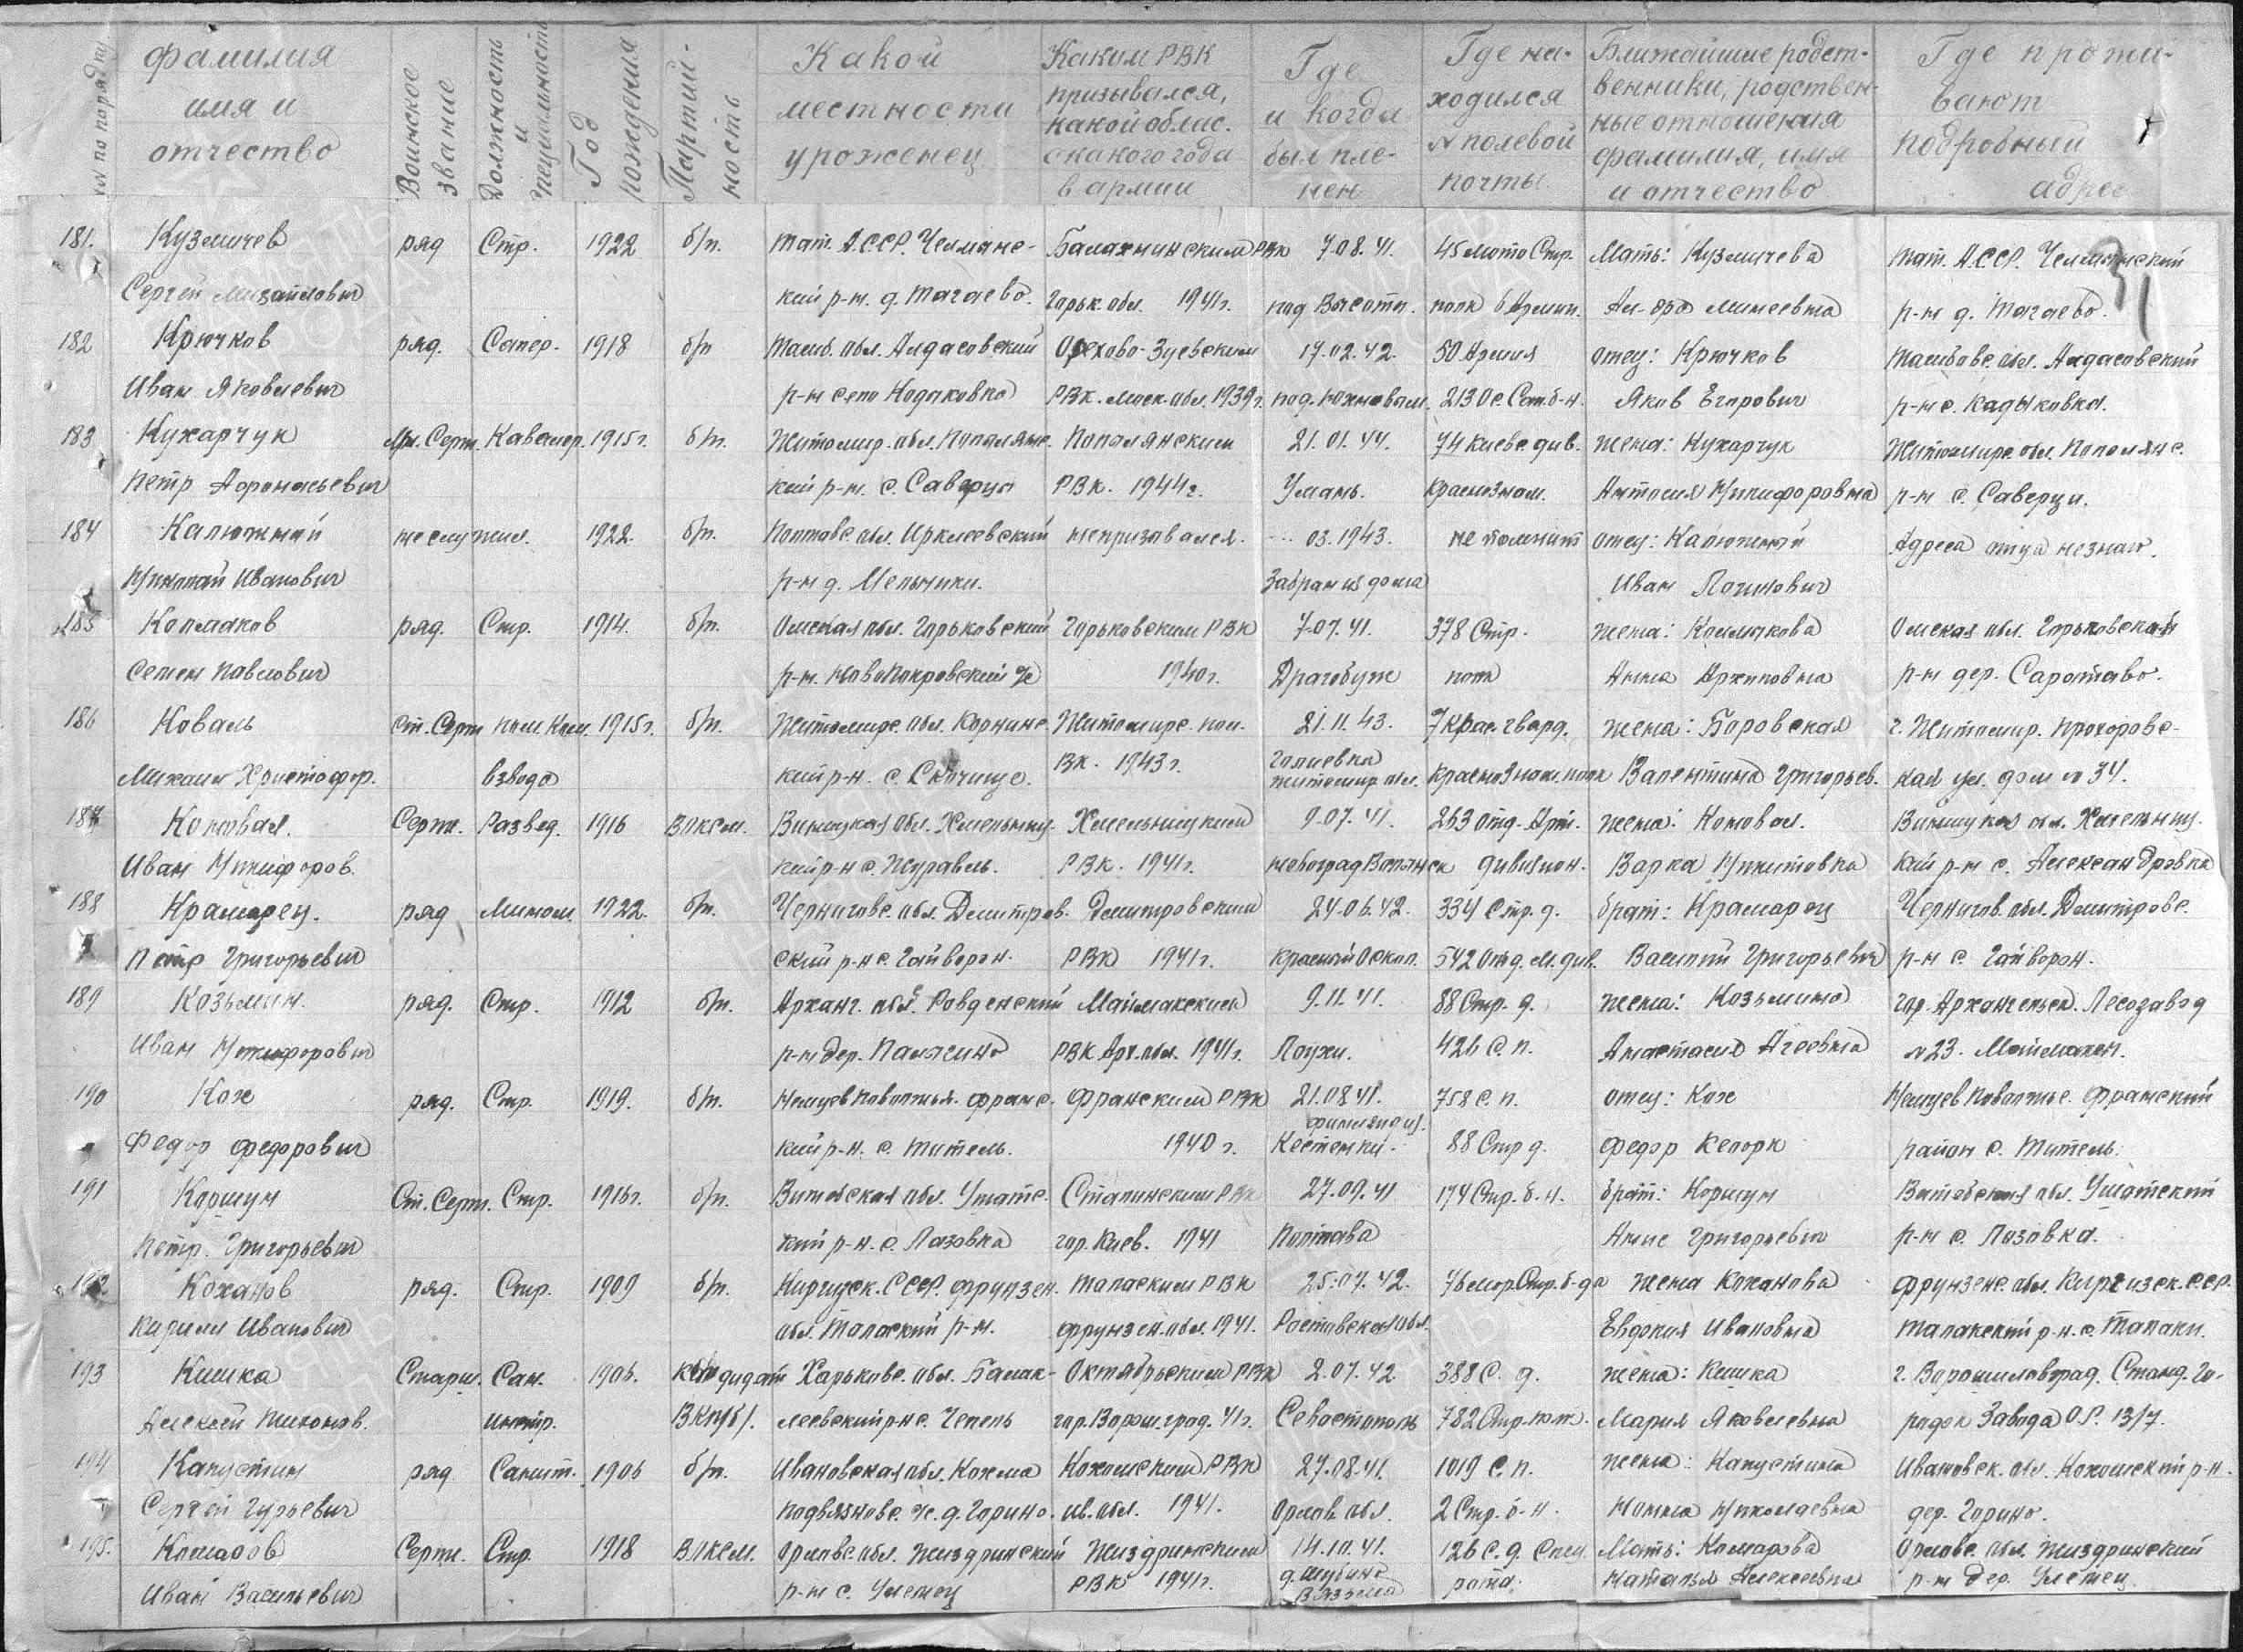 № по порядку
Фамилия имя и отчество
Воинское звание
Должность и специальность
Год рождения
Партийность
Какой местности уроженец
Каким РВК призывался, какой облис. с какого года в армии
Где и когда был пленен
Где находился № полевой почты
Ближайшие родственники, родственные отношения фамилия, имя и отчество
Где проживают подробный адрес
181. Кузмичев ряд Стр. 1922 б/п. Тат. А.ССР. Челманс- Балахнинским РВК 7.08.41. 45 мото Стр. Мать: Кузмичева Тат. А.ССР. Челманский
Сергей Михайлович кий р-н. д. Тагаево. Горьк. обл. 1941г. под полк 6 Армии. Ал-дра Минеевна р-н д. Тагаево.
182 Крючков ряд. Сапер. 1918 б/п Тамб. обл. Алгасовский Орехово-Зуевским 17.02.42. 50 Армия отец: Крючков Тамбовс. обл. Алгасовский
Иван Яковлевич р-н село РВК. Моск. обл. 1939г. под. Юхновом. 213 О.с. Сап. б-н. Яков Егорович р-н с. Кадыковка.
183 Кухарчук Мл. Серж. Кавалер. 1915г. б/п. Житомир. обл. Попелянс- Попелянским 21.01.44. 74 Киевс. див. жена: Кухарчук Житомирс. обл. Попелянс.
Петр Афонасьевич кий р-н. с. РВК. 1944г. Умань. Краснознам. Антосия Никифоровна р-н с. Саверци.
184 Калюжный не служил. 1922. б/п. Полтавс. обл. Ирклеевский не призовался. ... 03.1943. не помнит отец: Калюжный Адреса отца незнает.
Николай Иванович р-н д. Мельники. Забран из дома Иван Логинович
185 Колмаков ряд. Стр. 1914. б/п. Омская обл. Горьковский Горьковским РВК 7.07.41. 378 Стр. жена: Колмакова Омская обл. Горьковский
Семен Павлович р-н. Ново Покровский с/с 1940г. Драгобуж полк Анна Архиповна р-н дер. Саротаво.
186 Коваль Ст. Серж Пом. Ком. 1915г. б/п. Житомирс. обл. Корнинс- Житомирс. пол. 21.11.43. 7 Крас. гвард. жена: Боровская г. Житомир. Прохоровс-
Михаил Христофор. взвода кий р-н. с. Скочище. ВК. 1943г. Голиевка Житомир обл. Краснознам. полк Валентина Григорьев. кая ул. дом № 34.
187 Коновал. Серж. Развед. 1916 ВЛКСМ. Виницкая обл. Хмельниц- Хмельницким 9.07.41. 263 Отд. Арт. жена: Коновал. Виницкая обл. Хмельниц.
Иван Никифоров. кий р-н с. Журавель. РВК. 1941г. Новоград Волынск дивизион. Варка Никитовка кий р-н с. Александровка
188 Крамарец. ряд Мином. 1922. б/п. Черниговс. обл. Дмитров- Дмитровским 24.06.42. 334 Стр. д. брат: Крамарец Чернигов. обл. Дмитровс.
Петр Григорьевич ский р-н с. Гайворон. РВК 1941г. Красный Оскол. 542 Отд. М. див. Василий Григорьевич р-н с. Гайворон.
189 Козьмин. ряд. Стр. 1912 б/п. Арханг. обл. Ровденский Маймакским 9.11.41. 88 Стр. д. жена: Козьмина гор. Архангельск. Лесозавод
Иван Никифорович р-н дер. Палягино РВК Арх. обл. 1941г. Лоухи. 426 С. п. Анастасия Агеевна № 23. Маймакса.
190 Кох ряд. Стр. 1919. б/п. Немцев Поволжья. Франс- Франским РВК 21.08.41. 758 С. п. отец: Кох Немцев Поволжье. Франский
Федор Федорович кий р-н. с. Титель. 1940г. Финляндия. Кестенки. 88 Стр д. Федор Кеорк район с. Титель.
191 Коршун Ст. Серж. Стр. 1916г. б/п. Витебская обл. Ушатс- Сталинским РВК 27.09.41 174 Стр. б-н. брат: Коршун Витебская обл. Ушатский
Петр. Григорьевич кий р-н. с. Лазовка гор. Киев. 1941 Полтава Григорьевич р-н с. Лазовка.
192 Коханов ряд. Стр. 1909 б/п. Киргизск. ССР. Фрунзен. Таласким РВК 25.07.42. 76 Мор. Стр. б-да жена Коханова Фрунзенс. обл. Киргизск. ССР.
Кирилл Иванович обл. Талаский р-н. Фрунзен. обл. 1941. Ростовская обл. Евдокия Ивановна Таласкский р-н. с.
193 Кишка Старш. Сан. 1906. Кандидат Харьковс. обл. Балак- Октябрьским РВК 2.07.42 388 С. д. жена: Кишка г. Ворошиловград. Станд. Го-
Алексей Тихонов. инстр. ВКП(б). леевский р-н с. Чепель гор. Ворош. град. 41г. Севастополь 782 Стр. полк. Мария Яковлевна родок Завода О.Р. 13/7.
194 Капустин ряд Санит. 1906 б/п. Ивановская обл. Кохма Кохомским РВК 27.08.41. 1019 С. п. жена: Капустина Ивановск. обл. Кохомский р-н.
Сергей Гурьевич Подвязновс. д. Горино. Ив. обл. 1941. Орлов. обл. 2 Стр. б-н. Нонна Николаевна дер. Горино.
195. Комаров Серж. Стр. 1918 ВЛКСМ. Орловс. обл. Жиздринский Жиздринским 14.10.41. 126 С. д. Спец. Мать: Комарова Орловс. обл. Жиздринский
Иван Васильевич р-н с. Улемец РВК 1941г. д. Шубино Вязьма рота. Наталья Алексеевна р-н дер. Улемец.